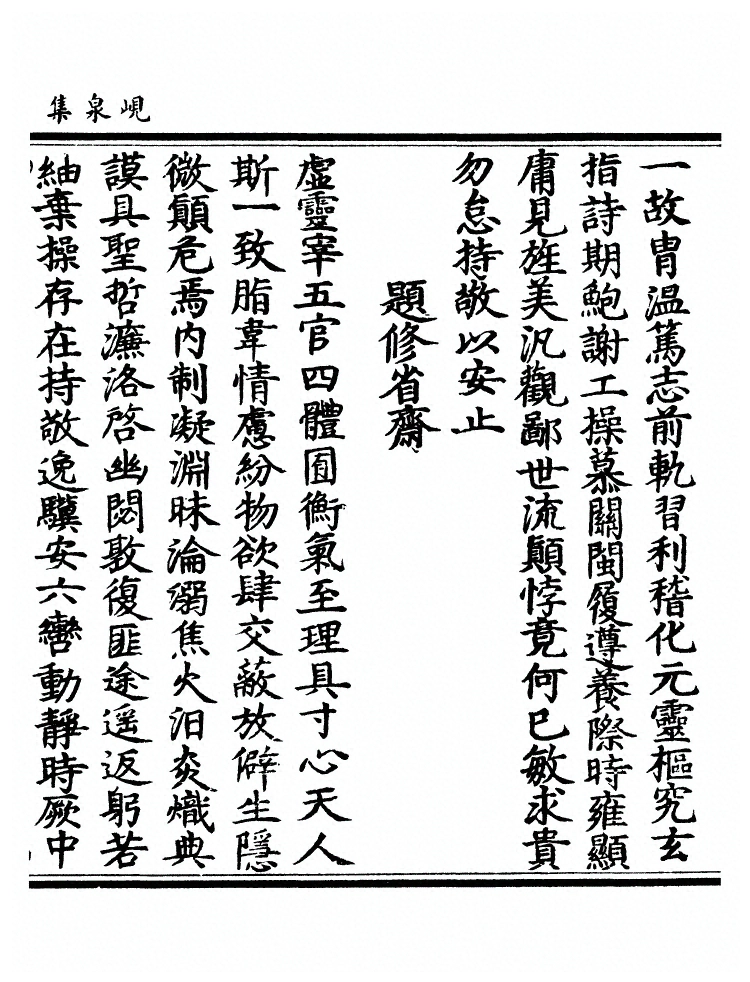 峴泉集
一故胄溫篤志前軌習利稽化元靈樞究玄
指詩期鮑謝工操慕關閩履遵養際時雍顯
庸見旌美汎觀鄙世流顛悖竟何已敏求貴
勿怠持敬以安止
題修省齋
虛靈宰五官四體囿衡氣至理具寸心天人
斯一致脂韋情慮紛物欲肆交蔽放僻生隱
微顛危焉內制凝淵昧淪溺焦火汨炎熾典
謨具聖哲濂洛啓幽閟敦復匪途遥返躬若
紬棄操存在持敬逸驥安六轡動靜時厥中